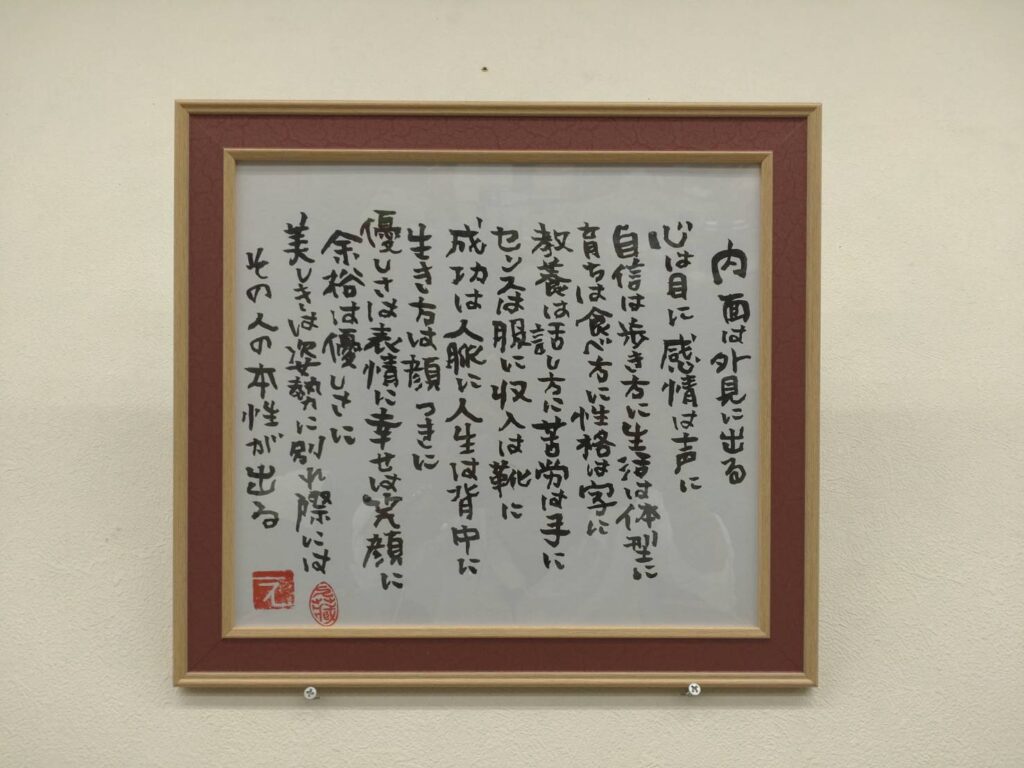 内面は外見に出る
心は目に感情は声に
自信は歩き方に生活は体型に
育ちは食べ方に性格は字に
教養は話し方に苦労は手に
センスは服に収入は靴に
成功は人脈に人生は背中に
生き方は顔つきに
優しさは表情に幸せは笑顔に
余裕は優しさに
美しさは姿勢に別れ際には
その人の本性が出る